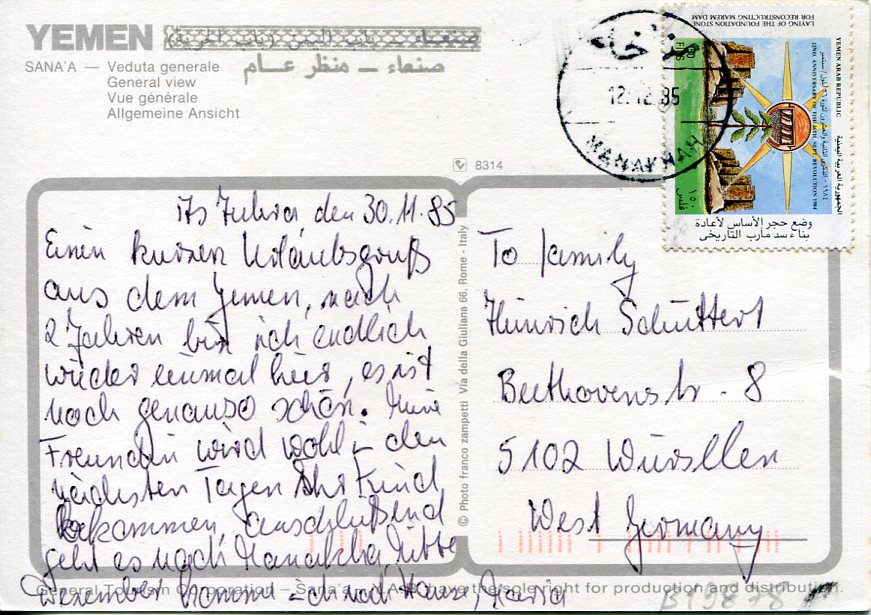 YEMEN صنعاء - باب اليمن (باب الحرية)
SANA'A — Veduta generale
General view
Vue générale
Allgemeine Ansicht
صنعاء — منظر عام
8314
مناخة
12.12.85
MANAKHAH
LAYING OF THE FOUNDATION STONE
FOR RECONSTRUCTING MAREM DAM
YEMEN ARAB REPUBLIC
22ND. ANNIVERSARY OF THE 26TH. SEPT. REVOLUTION 1984
الجمهورية العربية اليمنية
FILS
١٥٠ فلس
وضع حجر الأساس لأعادة
بناء سد مارب التاريخي
den 30.11.85
Einen kurzen Urlaubsgruß
aus dem Jemen, nach
2 Jahren bin ich endlich
wieder einmal hier, es ist
noch genauso schön. Meine
Freundin wird wohl in den
nächsten Tagen Ihr Kind
bekommen, anschließend
geht es nach Manakha, Mitte
Dezember komme ich nach Haus,
To Family
Heinrich Schüttert
Beethovenstr. 8
5102 Würselen
West Germany
© Photo franco zampetti Via della Giuliana 66, Rome - Italy
General Tourism Corporation — Sana'a Y.A.R. have the sole right for production and distribution.